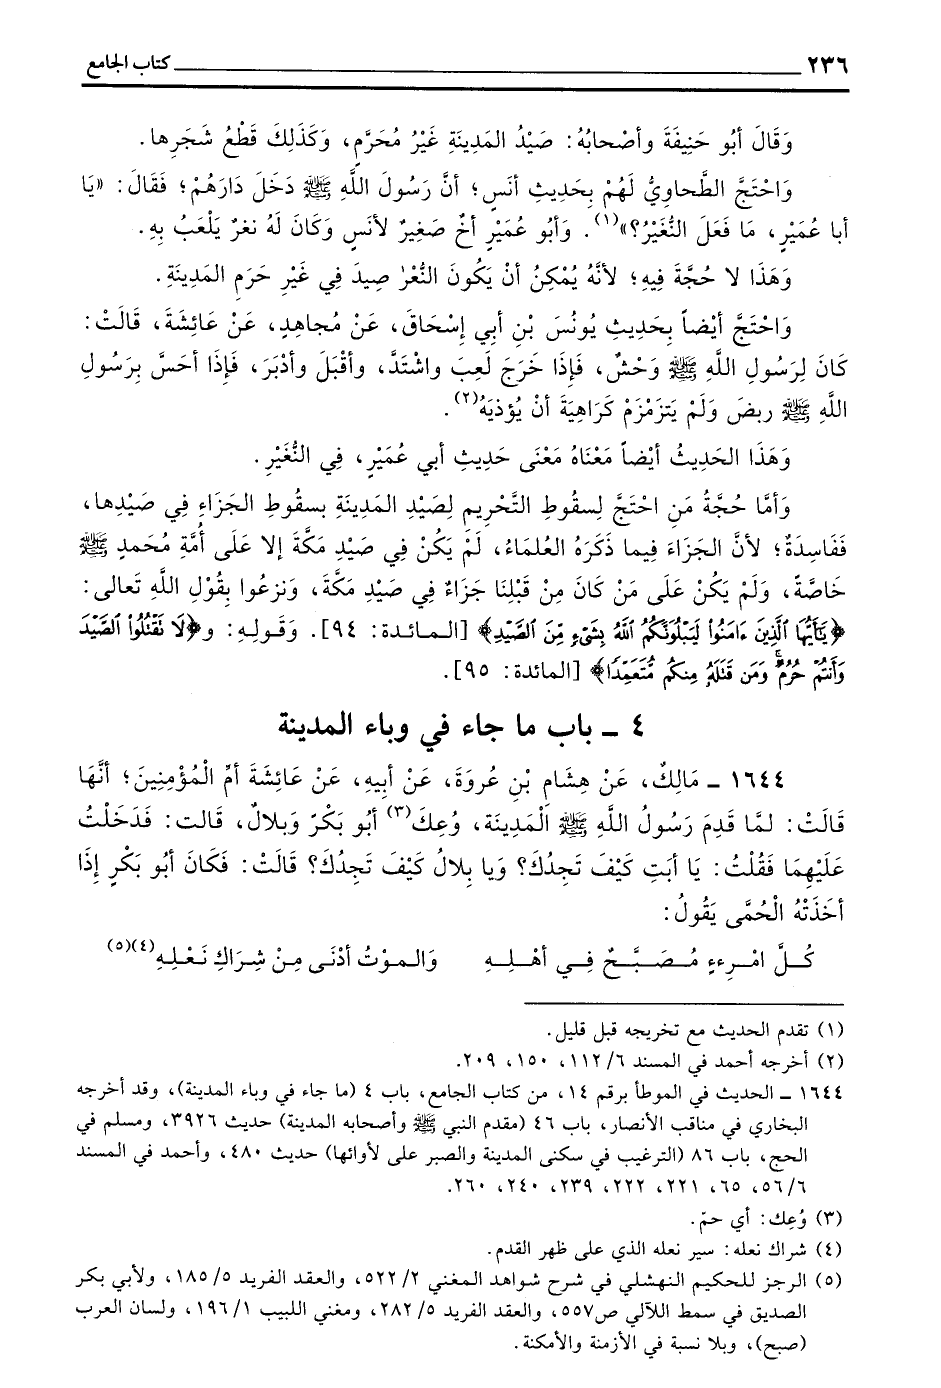 ٢٣٦ كتاب الجامع
وَقَالَ أبُو حَنِيفَةَ وأصْحابُهُ: صَيْدُ المَدِينَةِ غَيْرُ مُحَرَّمٍ، وَكَذَلِكَ قَطْعُ شَجَرِها.
وَاحْتَجَّ الطَّحاوِيُّ لَهُمْ بِحَدِيثِ أنَسٍ؛ أنَّ رَسُولَ اللَّهِ ﷺ دَخَلَ دَارَهُمْ؛ فَقَالَ: «يَا
أبا عُمَيْرٍ، مَا فَعَلَ النُّغَيْرُ؟»(١). وَأبُو عُمَيْرٍ أخٌ صَغِيرٌ لأنَسٍ وَكَانَ لَهُ نغرٌ يَلْعَبُ بِهِ.
وَهَذَا لا حُجَّةَ فِيهِ؛ لأنَّهُ يُمْكِنُ أنْ يَكُونَ النُّغرُ صِيدَ فِي غَيْرِ حَرَمِ المَدِينَةِ.
وَاحْتَجَّ أيْضاً بِحَدِيثِ يُونُسَ بْنِ أبي إسْحَاقَ، عَنْ مُجاهِدٍ، عَنْ عَائِشَةَ، قَالَتْ:
كَانَ لِرَسُولِ اللَّهِ ﷺ وَحْشٌ، فَإذَا خَرَجَ لَعِبَ واشْتَدَّ، وأقْبَلَ وأدْبَرَ، فَإذَا أحَسَّ بِرَسُولِ
اللَّهِ ﷺ ربضَ وَلَمْ يَتزَمْزَمْ كَرَاهِيَةَ أنْ يُؤذيَهُ(٢).
وَهَذَا الحَدِيثُ أيْضاً مَعْنَاهُ مَعْنَى حَدِيثِ أبي عُمَيْرٍ، فِي النُّغَيْرِ.
وَأمَّا حُجَّةُ مَنِ احْتَجَّ لِسقُوطِ التَّحْرِيمِ لِصَيْدِ المَدِينَةِ بسقُوطِ الجَزَاءِ فِي صَيْدِها،
فَفَاسِدَةٌ؛ لأنَّ الجَزَاءَ فِيما ذَكَرَهُ العُلَمَاءُ، لَمْ يَكُنْ فِي صَيْدِ مَكَّةَ إلا عَلَى أُمَّةِ مُحَمدٍ ﷺ
خَاصَّةً، وَلَمْ يَكُنْ عَلَى مَنْ كَانَ مِنْ قَبْلِنَا جَزَاءٌ فِي صَيْدِ مَكَّةَ، وَنزعُوا بِقُوْلِ اللَّهِ تَعالى:
﴿يَٰٓأَيُّهَا ٱلَّذِينَ ءَامَنُوا۟ لَيَبْلُوَنَّكُمُ ٱللَّهُ بِشَىْءٍ مِّنَ ٱلصَّيْدِ﴾ [المائدة: ٩٤]. وَقَولِهِ: و﴿لَا تَقْتُلُوا۟ ٱلصَّيْدَ
وَأَنتُمْ حُرُمٌ ۚ وَمَن قَتَلَهُۥ مِنكُم مُّتَعَمِّدًا﴾ [المائدة: ٩٥].
٤ ـ باب ما جاء في وباء المدينة
١٦٤٤ ـ مَالِكٌ، عَنْ هِشَامِ بْنِ عُروَةَ، عَنْ أبيهِ، عَنْ عَائِشَةَ أُمِّ الْمُؤْمِنِينَ؛ أنَّهَا
قَالَتْ: لمَّا قَدِمَ رَسُولُ اللَّهِ ﷺ الْمَدِينَة، وُعِكَ(٣) أبُو بَكْرٍ وَبلالٌ، قَالت: فَدَخَلْتُ
عَلَيْهِمَا فَقُلْتُ: يَا أبَتِ كَيْفَ تَجِدُكَ؟ وَيا بِلالُ كَيْفَ تَجِدُكَ؟ قَالَتْ: فَكَانَ أبُو بَكْرٍ إذَا
أخَذَتْهُ الْحُمَّى يَقُولُ:
كُلُّ امْرِءءٍ مُصَبَّحٌ فِي أهْلِهِ وَالموْتُ أدْنَى مِنْ شِرَاكِ نَعْلِهِ(٤)(٥)
(١) تقدم الحديث مع تخريجه قبل قليل.
(٢) أخرجه أحمد في المسند ٦/ ١١٢، ١٥٠، ٢٠٩.
١٦٤٤ ـ الحديث في الموطأ برقم ١٤، من كتاب الجامع، باب ٤ (ما جاء في وباء المدينة)، وقد أخرجه
البخاري في مناقب الأنصار، باب ٤٦ (مقدم النبي ﷺ وأصحابه المدينة) حديث ٣٩٢٦، ومسلم في
الحج، باب ٨٦ (الترغيب في سكنى المدينة والصبر على لأوائها) حديث ٤٨٠، وأحمد في المسند
٦/ ٥٦، ٦٥، ٢٢١، ٢٢٢، ٢٣٩، ٢٤٠، ٢٦٠.
(٣) وُعِك: أي حمّ.
(٤) شراك نعله: سير نعله الذي على ظهر القدم.
(٥) الرجز للحكيم النهشلي في شرح شواهد المغني ٢/ ٥٢٢، والعقد الفريد ٥/ ١٨٥، ولأبي بكر
الصديق في سمط اللآلي ص٥٥٧، والعقد الفريد ٥/ ٢٨٢، ومغني اللبيب ١/ ١٩٦، ولسان العرب
(صبح)، وبلا نسبة في الأزمنة والأمكنة.